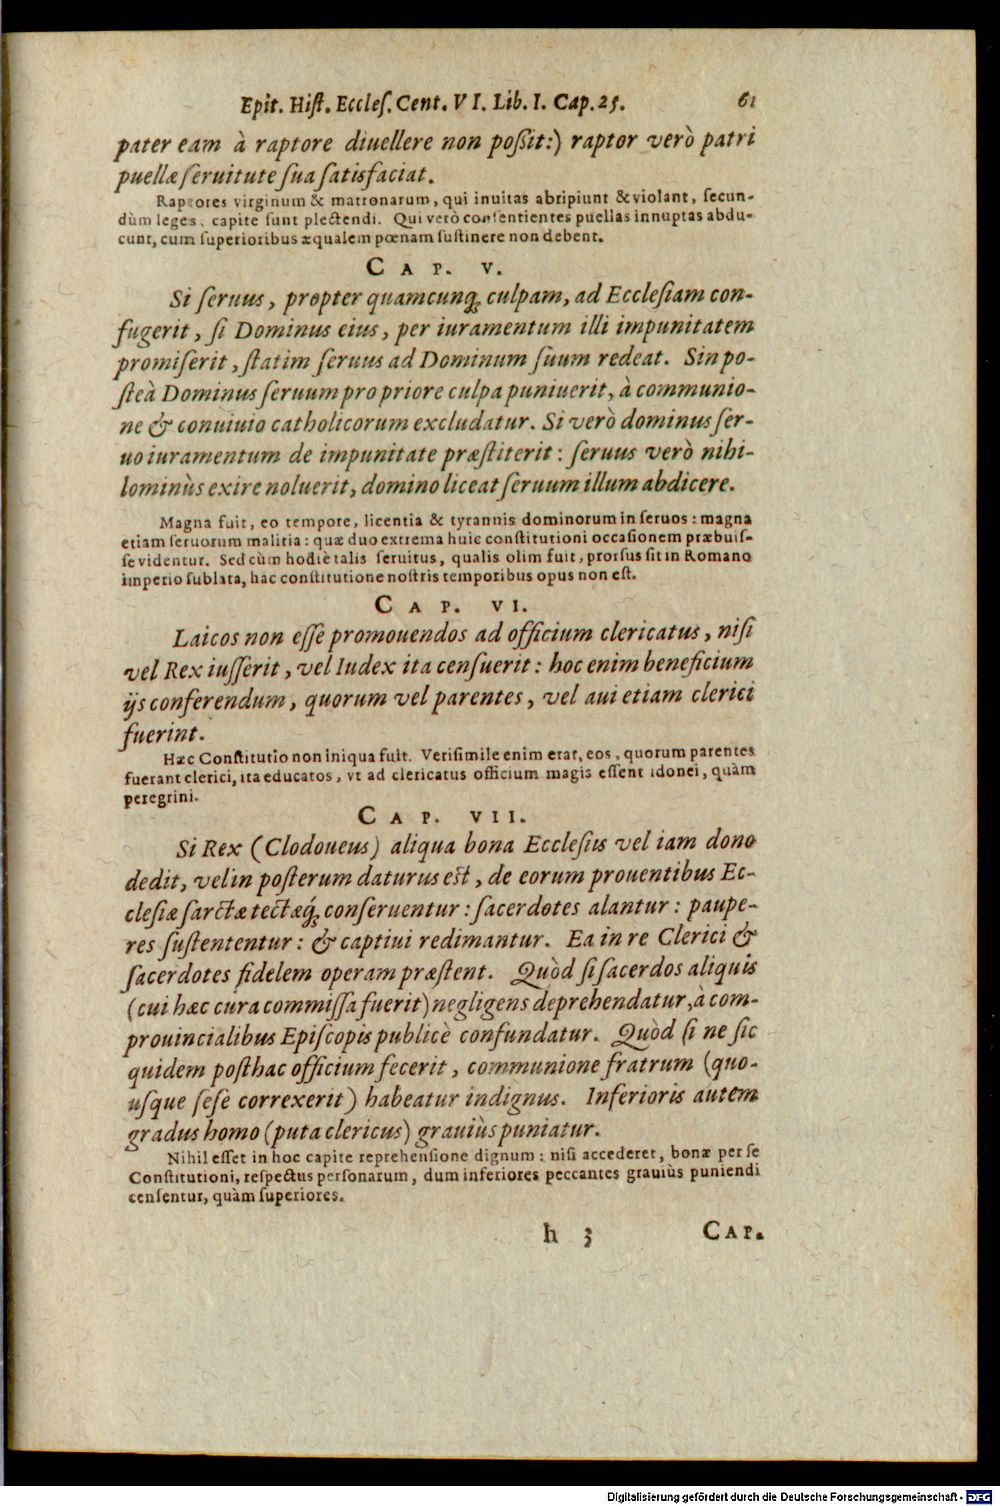 Epit. Hiſt. Eccleſ. Cent. VI. Lib. I. Cap. 25. 61
pater eam à raptore diuellere non poßit:) raptor verò patri
puellæ ſeruitute ſua ſatisfaciat.
Raptores virginum & matronarum, qui inuitas abripiunt & violant, ſecun-
dùm leges, capite ſunt plectendi. Qui verò conſentientes puellas innuptas abdu-
cunt, cum ſuperioribus æqualem pœnam ſuſtinere non debent.
CAP. V.
Si ſeruus, propter quamcunq; culpam, ad Eccleſiam con-
fugerit, ſi Dominus eius, per iuramentum illi impunitatem
promiſerit, ſtatim ſeruus ad Dominum ſuum redeat. Sin po-
ſteà Dominus ſeruum pro priore culpa puniuerit, à communio-
ne & conuiuio catholicorum excludatur. Si verò dominus ſer-
uo iuramentum de impunitate præſtiterit: ſeruus verò nihi-
lominùs exire noluerit, domino liceat ſeruum illum abdicere.
Magna fuit, eo tempore, licentia & tyrannis dominorum in ſeruos: magna
etiam ſeruorum malitia: quæ duo extrema huic conſtitutioni occaſionem præbuiſ-
ſe videntur. Sed cùm hodiè talis ſeruitus, qualis olim fuit, prorſus ſit in Romano
imperio ſublata, hac conſtitutione noſtris temporibus opus non eſt.
CAP. VI.
Laicos non eſſe promouendos ad officium clericatus, niſi
vel Rex iuſſerit, vel Iudex ita cenſuerit: hoc enim beneficium
ijs conferendum, quorum vel parentes, vel aui etiam clerici
fuerint.
Hæc Conſtitutio non iniqua fuit. Veriſimile enim erat, eos, quorum parentes
fuerant clerici, ita educatos, vt ad clericatus officium magis eſſent idonei, quàm
peregrini.
CAP. VII.
Si Rex (Clodoueus) aliqua bona Eccleſiis vel iam dono
dedit, vel in poſterum daturus eſt, de eorum prouentibus Ec-
cleſiæ ſarctæ tectæq́; conſeruentur: ſacerdotes alantur: paupe-
res ſuſtententur: & captiui redimantur. Ea in re Clerici &
ſacerdotes fidelem operam præſtent. Quòd ſi ſacerdos aliquis
(cui hæc cura commiſſa fuerit) negligens deprehendatur, à com-
prouincialibus Epiſcopis publicè confundatur. Quòd ſi ne ſic
quidem poſthac officium fecerit, communione fratrum (quo-
uſque ſeſe correxerit) habeatur indignus. Inferioris autem
gradus homo (puta clericus) grauiùs puniatur.
Nihil eſſet in hoc capite reprehenſione dignum: niſi accederet, bonæ per ſe
Conſtitutioni, reſpectus perſonarum, dum inferiores peccantes grauiùs puniendi
cenſentur, quàm ſuperiores.
h 3 CAP.
Digitalisierung gefördert durch die Deutsche Forschungsgemeinschaft - DFG